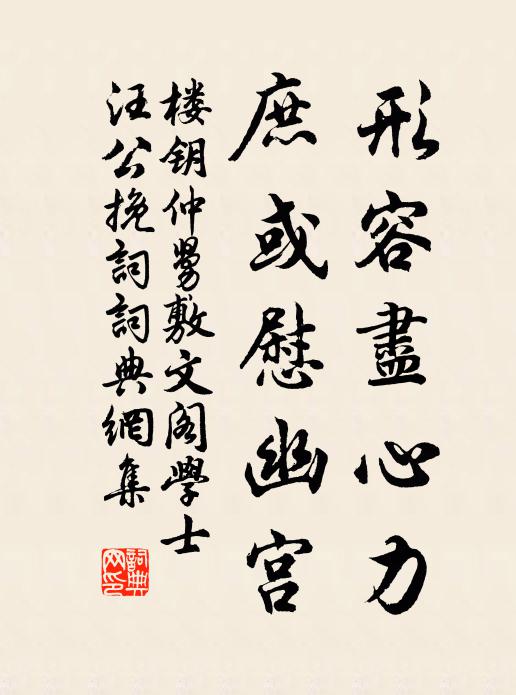 形容盡心力
庶或慰幽宫
楼钥仲舅敷文阁學士
汪公挽詞詞典網集
詞典
网印